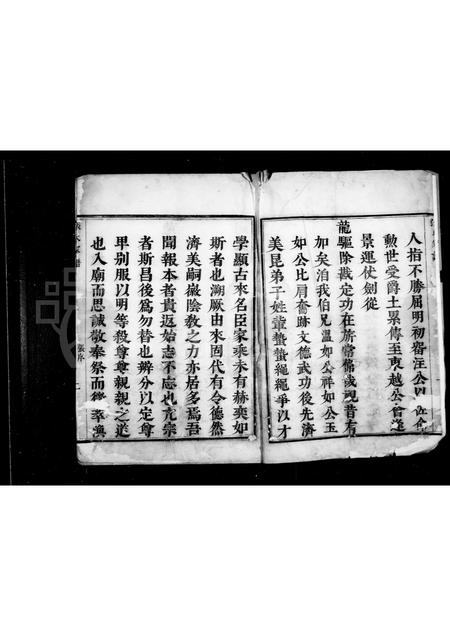 人指不勝屈明初
勲世受爵土累傳至東越公曾逢
景運仗劍從
龍驅除戡定功在旂常佛歲視昔有
加矣洎我伯兄溫如公祥如公玉
如公比肩奮跡文德武功後先濟
美昆弟子姓蟄蟄繩繩爭以才
學顯古來名臣家乘未有赫奕如
斯者也溯厥由來固代有令德然
濟美嗣徽陰教之力亦居多焉吾
聞報本者貴返始志不忘也亢宗
者斯昌後爲勿替也辨分以定尊
卑别服以明等殺尊尊親親之道
也入廟而思誠敬奉祭而